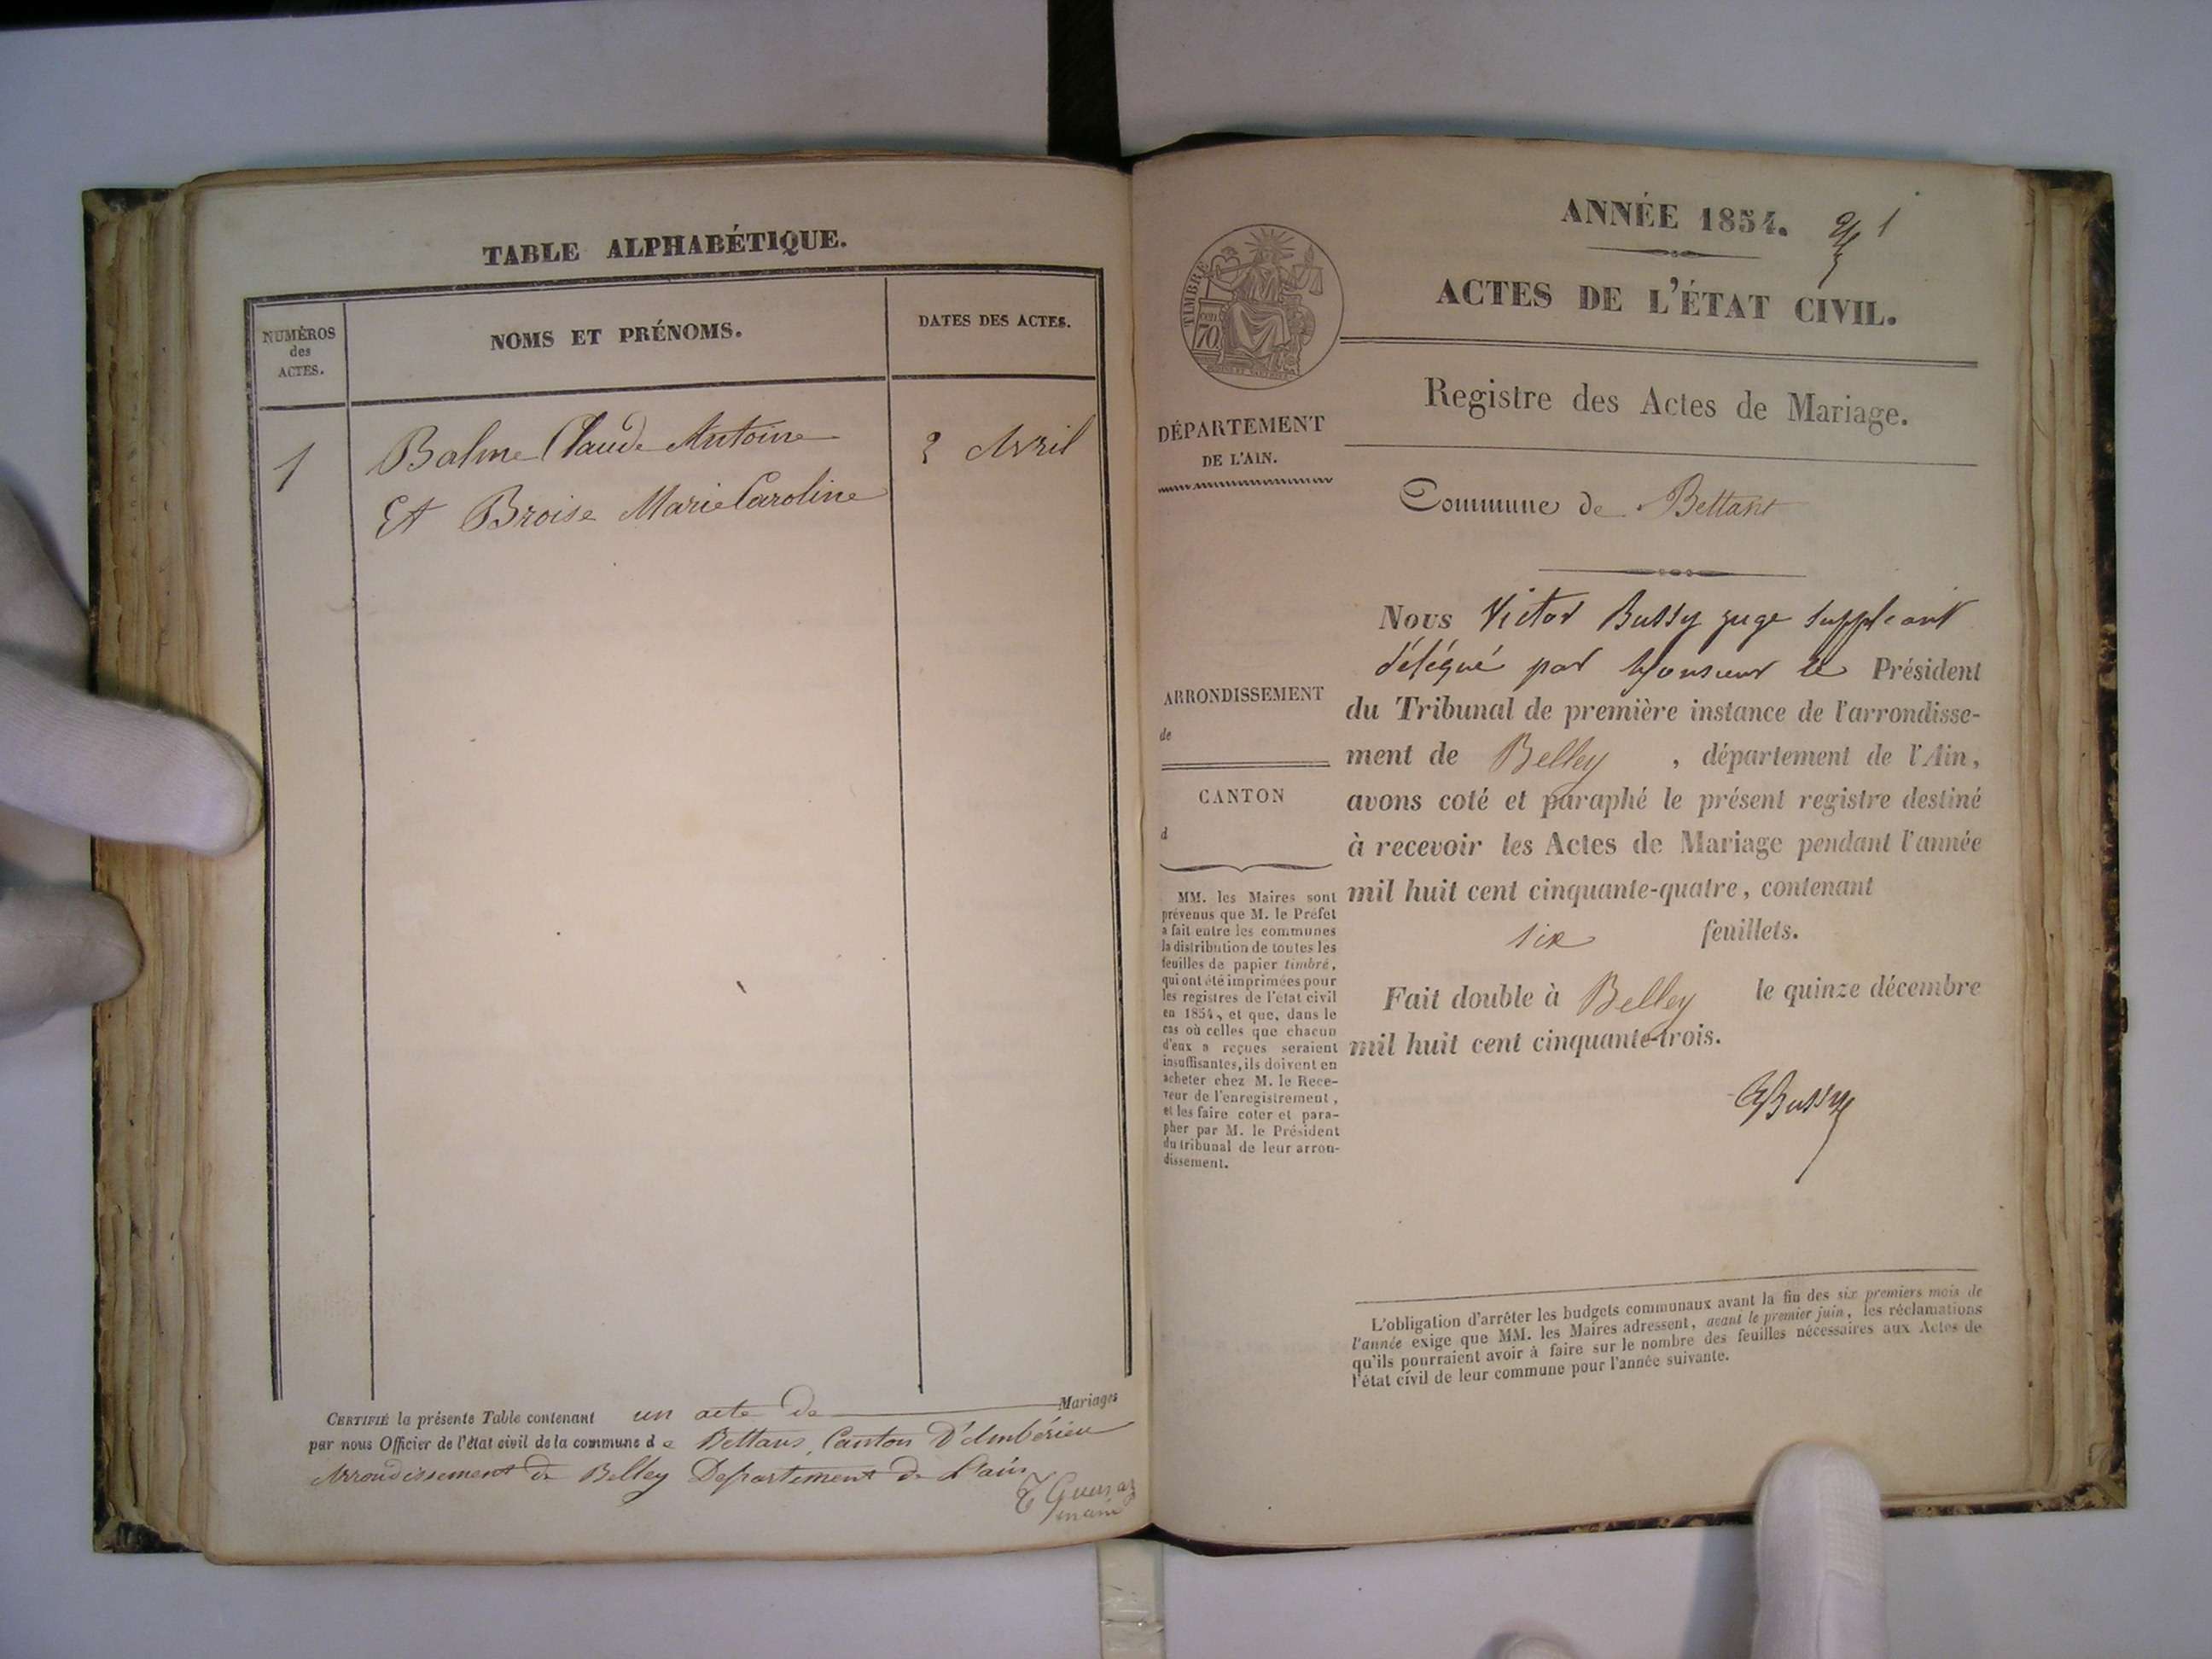 TABLE ALPHABÉTIQUE.
NUMÉROS
des
ACTES.
NOMS ET PRÉNOMS.
DATES DES ACTES.
1
Balme Claude Antoine
2 Avril
Et Broise Marie Caroline
CERTIFIÉ la présente Table contenant un acte de Mariages
par nous Officier de l'état civil de la commune de Bettans, Canton D'Ambérieu
Arrondissement de Belley Departement de L'ain
maire
ANNÉE 1854.
1
ACTES DE L'ÉTAT CIVIL.
TIMBRE
70
DÉPARTEMENT
DE L'AIN.
Registre des Actes de Mariage.
Commune de Bettant
ARRONDISSEMENT
de
CANTON
d
MM. les Maires sont
prévenus que M. le Préfet
a fait entre les communes
la distribution de toutes les
feuilles de papier timbré,
qui ont été imprimées pour
les registres de l'état civil
en 1854, et que, dans le
cas où celles que chacun
d'eux a reçues seraient
insuffisantes, ils doivent en
acheter chez M. le Rece-
veur de l'enregistrement,
et les faire coter et para-
pher par M. le Président
du tribunal de leur arron-
dissement.
Nous Victor Bussy juge suppleant
délégué par Monsieur le Président
du Tribunal de première instance de l'arrondisse-
ment de Belley, département de l'Ain,
avons coté et paraphé le présent registre destiné
à recevoir les Actes de Mariage pendant l'année
mil huit cent cinquante-quatre, contenant
six feuillets.
Fait double à Belley le quinze décembre
mil huit cent cinquante-trois.
Bussy
L'obligation d'arrêter les budgets communaux avant la fin des six premiers mois de
l'année exige que MM. les Maires adressent, avant le premier juin, les réclamations
qu'ils pourraient avoir à faire sur le nombre des feuilles nécessaires aux Actes de
l'état civil de leur commune pour l'année suivante.